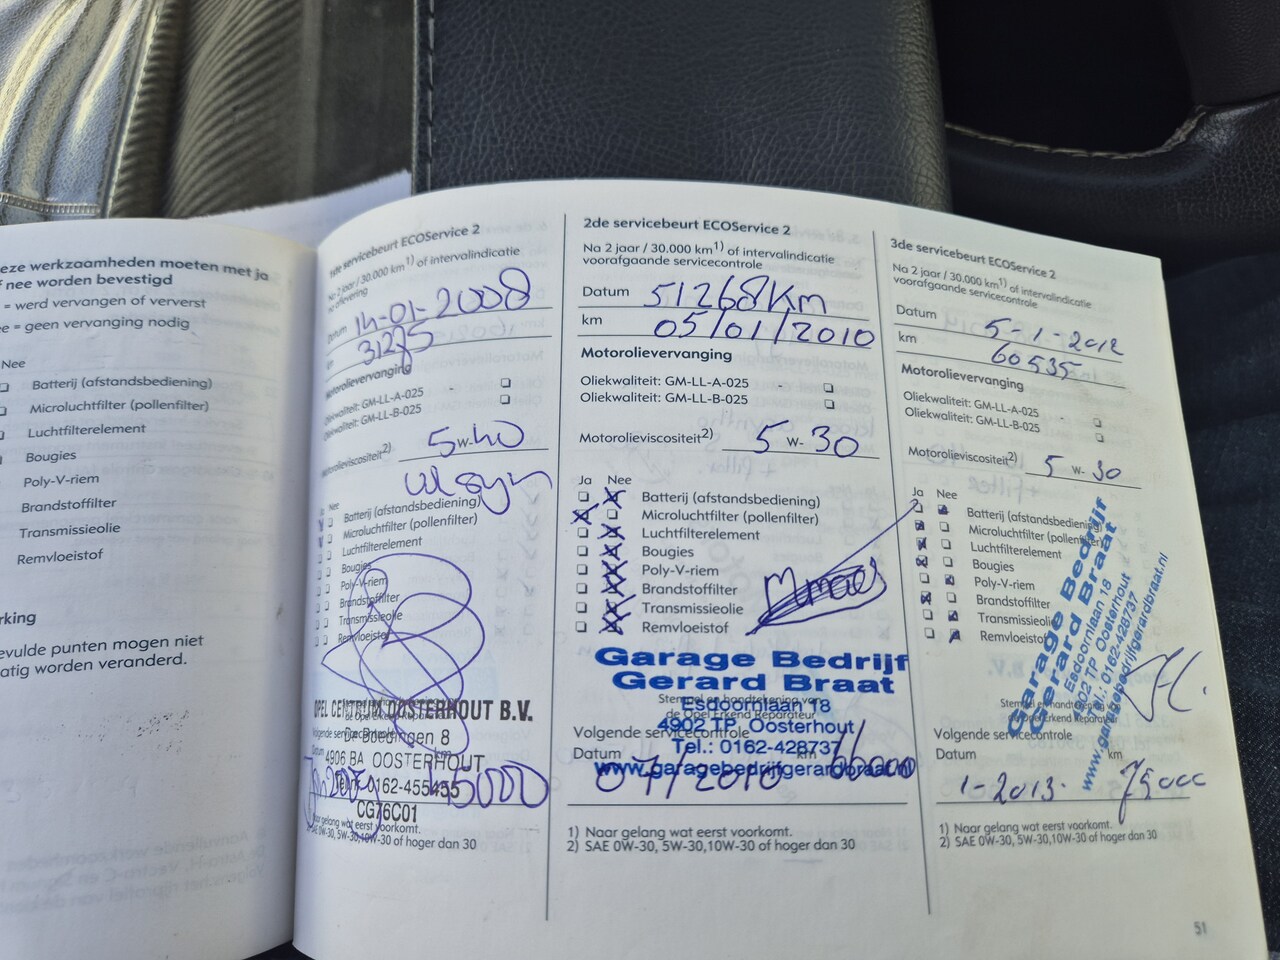 eze werkzaamheden moeten met ja
nee worden bevestigd
= werd vervangen of ververst
ee = geen vervanging nodig
Nee
Batterij (afstandsbediening)
Microluchtfilter (pollenfilter)
Luchtfilterelement
Bougies
Poly-V-riem
Brandstoffilter
Transmissieolie
Remvloeistof
rking
evulde punten mogen niet
atig worden veranderd.
1ste servicebeurt ECOService 2
Na 2 jaar / 30.000 km1) of intervalindicatie
na aflevering
Datum 14-01-2008
km 31275
Motorolievervanging
Oliekwaliteit: GM-LL-A-025
Oliekwaliteit: GM-LL-B-025
Motorolieviscositeit2) 5 W- 40
Ja Nee
Batterij (afstandsbediening)
Microluchtfilter (pollenfilter)
Luchtfilterelement
Bougies
Poly-V-riem
Brandstoffilter
Transmissieolie
Remvloeistof
OPEL CENTRUM OOSTERHOUT B.V.
De Boedingen 8
Volgende servicecontrole
Datum km
4906 BA OOSTERHOUT
0162-455455
45000
CG76C01
1) Naar gelang wat eerst voorkomt.
2) SAE 0W-30, 5W-30,10W-30 of hoger dan 30
2de servicebeurt ECOService 2
Na 2 jaar / 30.000 km1) of intervalindicatie
voorafgaande servicecontrole
Datum 51268 Km
km 05/01/2010
Motorolievervanging
Oliekwaliteit: GM-LL-A-025
Oliekwaliteit: GM-LL-B-025
Motorolieviscositeit2) 5 W- 30
Ja Nee
Batterij (afstandsbediening)
Microluchtfilter (pollenfilter)
Luchtfilterelement
Bougies
Poly-V-riem
Brandstoffilter
Transmissieolie
Remvloeistof
Garage Bedrijf
Gerard Braat
Stempel en handtekening van
de Opel Erkend Reparateur
Esdoornlaan 18
4902 TP Oosterhout
Volgende servicecontrole
Tel.: 0162-428737
Datum km
www.garagebedrijfgerardbraat.nl
66000
1) Naar gelang wat eerst voorkomt.
2) SAE 0W-30, 5W-30,10W-30 of hoger dan 30
3de servicebeurt ECOService 2
Na 2 jaar / 30.000 km1) of intervalindicatie
voorafgaande servicecontrole
Datum 5-1-2012
km 60535
Motorolievervanging
Oliekwaliteit: GM-LL-A-025
Oliekwaliteit: GM-LL-B-025
Motorolieviscositeit2) 5 W- 30
Ja Nee
Batterij (afstandsbediening)
Microluchtfilter (pollenfilter)
Luchtfilterelement
Bougies
Poly-V-riem
Brandstoffilter
Transmissieolie
Remvloeistof
Garage Bedrijf
Gerard Braat
Esdoornlaan 18
4902 TP Oosterhout
Tel.: 0162-428737
www.garagebedrijfgerardbraat.nl
Stempel en handtekening van
de Opel Erkend Reparateur
Volgende servicecontrole
Datum km
1-2013. 75000
1) Naar gelang wat eerst voorkomt.
2) SAE 0W-30, 5W-30,10W-30 of hoger dan 30
51